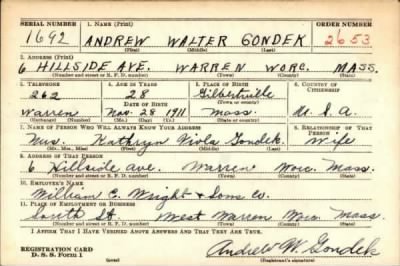 SERIAL NUMBER 1. NAME (Print) ORDER NUMBER
1692 ANDREW WALTER GONDEK 2653
(First) (Middle) (Last)
2. ADDRESS (Print)
6 HILLSIDE AVE. WARREN WORC. MASS.
(Number and street or R. F. D. number) (Town) (County) (State)
3. TELEPHONE 4. AGE IN YEARS 5. PLACE OF BIRTH 6. COUNTRY OF CITIZENSHIP
262 28 Gilbertville
DATE OF BIRTH (Town or county)
Warren Nov. 28 1911 Mass. U. S. A.
(Exchange) (Number) (Mo.) (Day) (Yr.) (State or country)
7. NAME OF PERSON WHO WILL ALWAYS KNOW YOUR ADDRESS 8. RELATIONSHIP OF THAT PERSON
Mrs. Kathryn Viola Gondek Wife
(Mr., Mrs., Miss) (First) (Middle) (Last)
9. ADDRESS OF THAT PERSON
6 Hillside ave. Warren Worc. Mass.
(Number and street or R. F. D. number) (Town) (County) (State)
10. EMPLOYER'S NAME
William E. Wright & Sons Co.
11. PLACE OF EMPLOYMENT OR BUSINESS
South St. West Warren Worc. Mass
(Number and street or R. F. D. number) (Town) (County) (State)
I AFFIRM THAT I HAVE VERIFIED ABOVE ANSWERS AND THAT THEY ARE TRUE.
REGISTRATION CARD
D. S. S. Form 1 Andrew W. Gondek
(Registrant's signature)